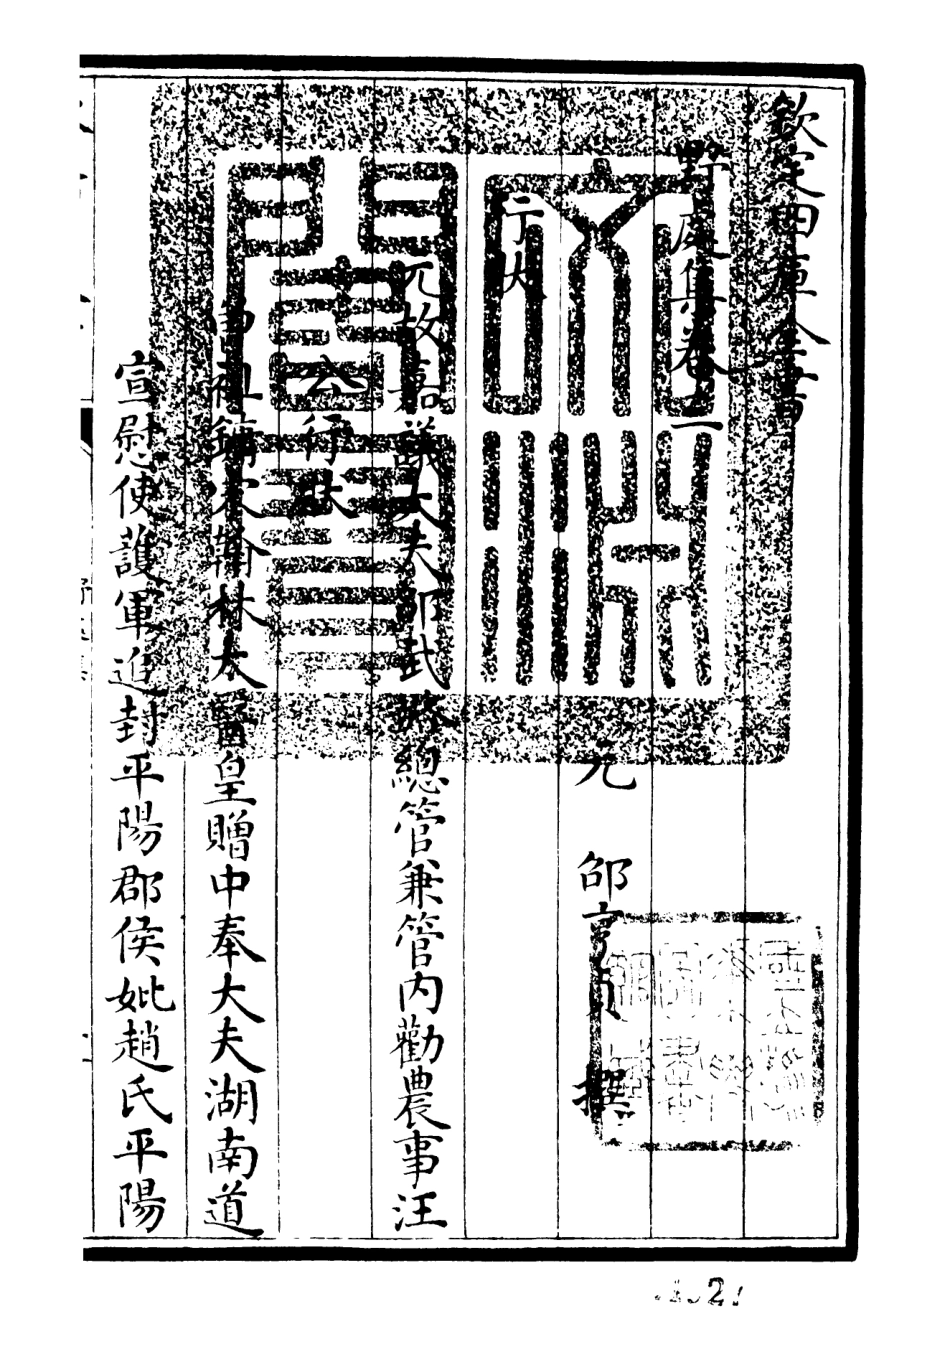 欽定四庫全書
野處集卷二
元 邵亨貞 撰
行狀
元故嘉議大夫邵武路總管兼管內勸農事汪
公行狀
曾祖鏞宋翰林太醫皇贈中奉大夫湖南道
宣慰使護軍追封平陽郡侯妣趙氏平陽